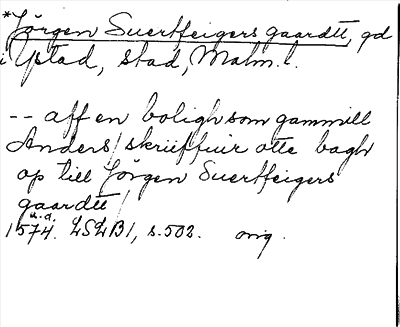 *Jørgen Suertfeigers gaardtt, gd
i Ystad, stad, Malm. l.
-- aff en boligh som gammill
Anders / skriieffuir otte bagh
op till Jørgen Suertfeigers
gaardtt /
u.å.
1574. LSLB1, s. 502. orig.